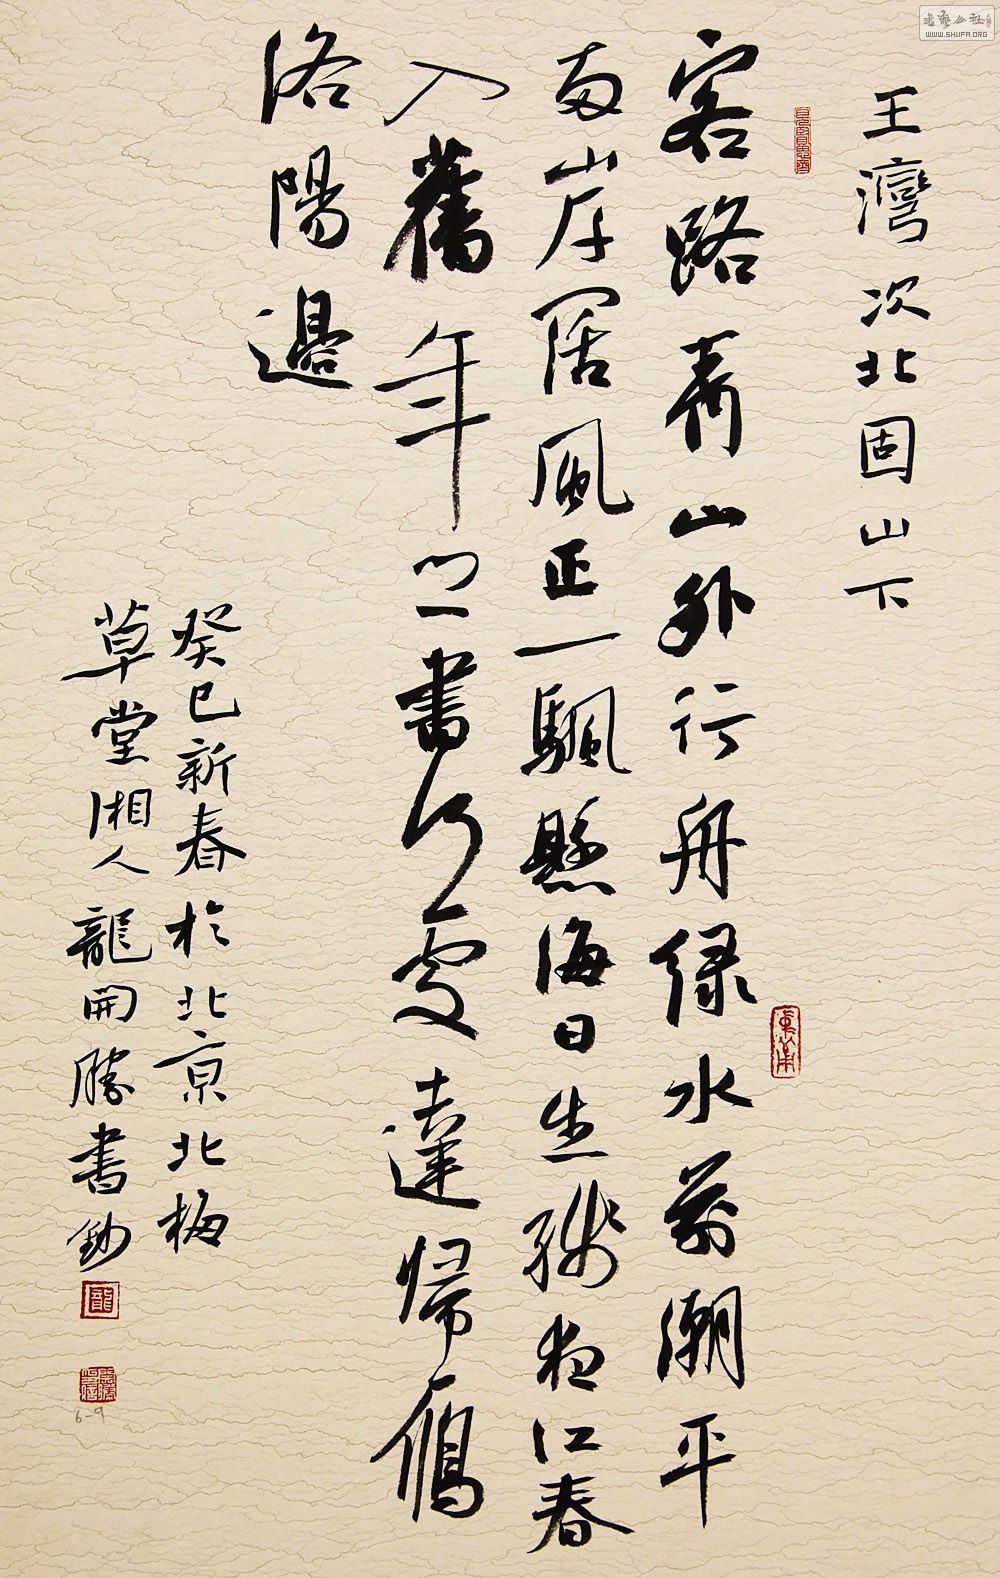 王灣次北固山下
客路青山外行舟緑水前潮平
兩岸闊風正一颿懸海日生殘夜江春
入舊年鄉書何處達歸鴈
洛陽邊
癸巳新春於北京北梅
草堂湘人龍開勝書鈔
龍
6-9
書藝公社
WWW.SHUFA.ORG